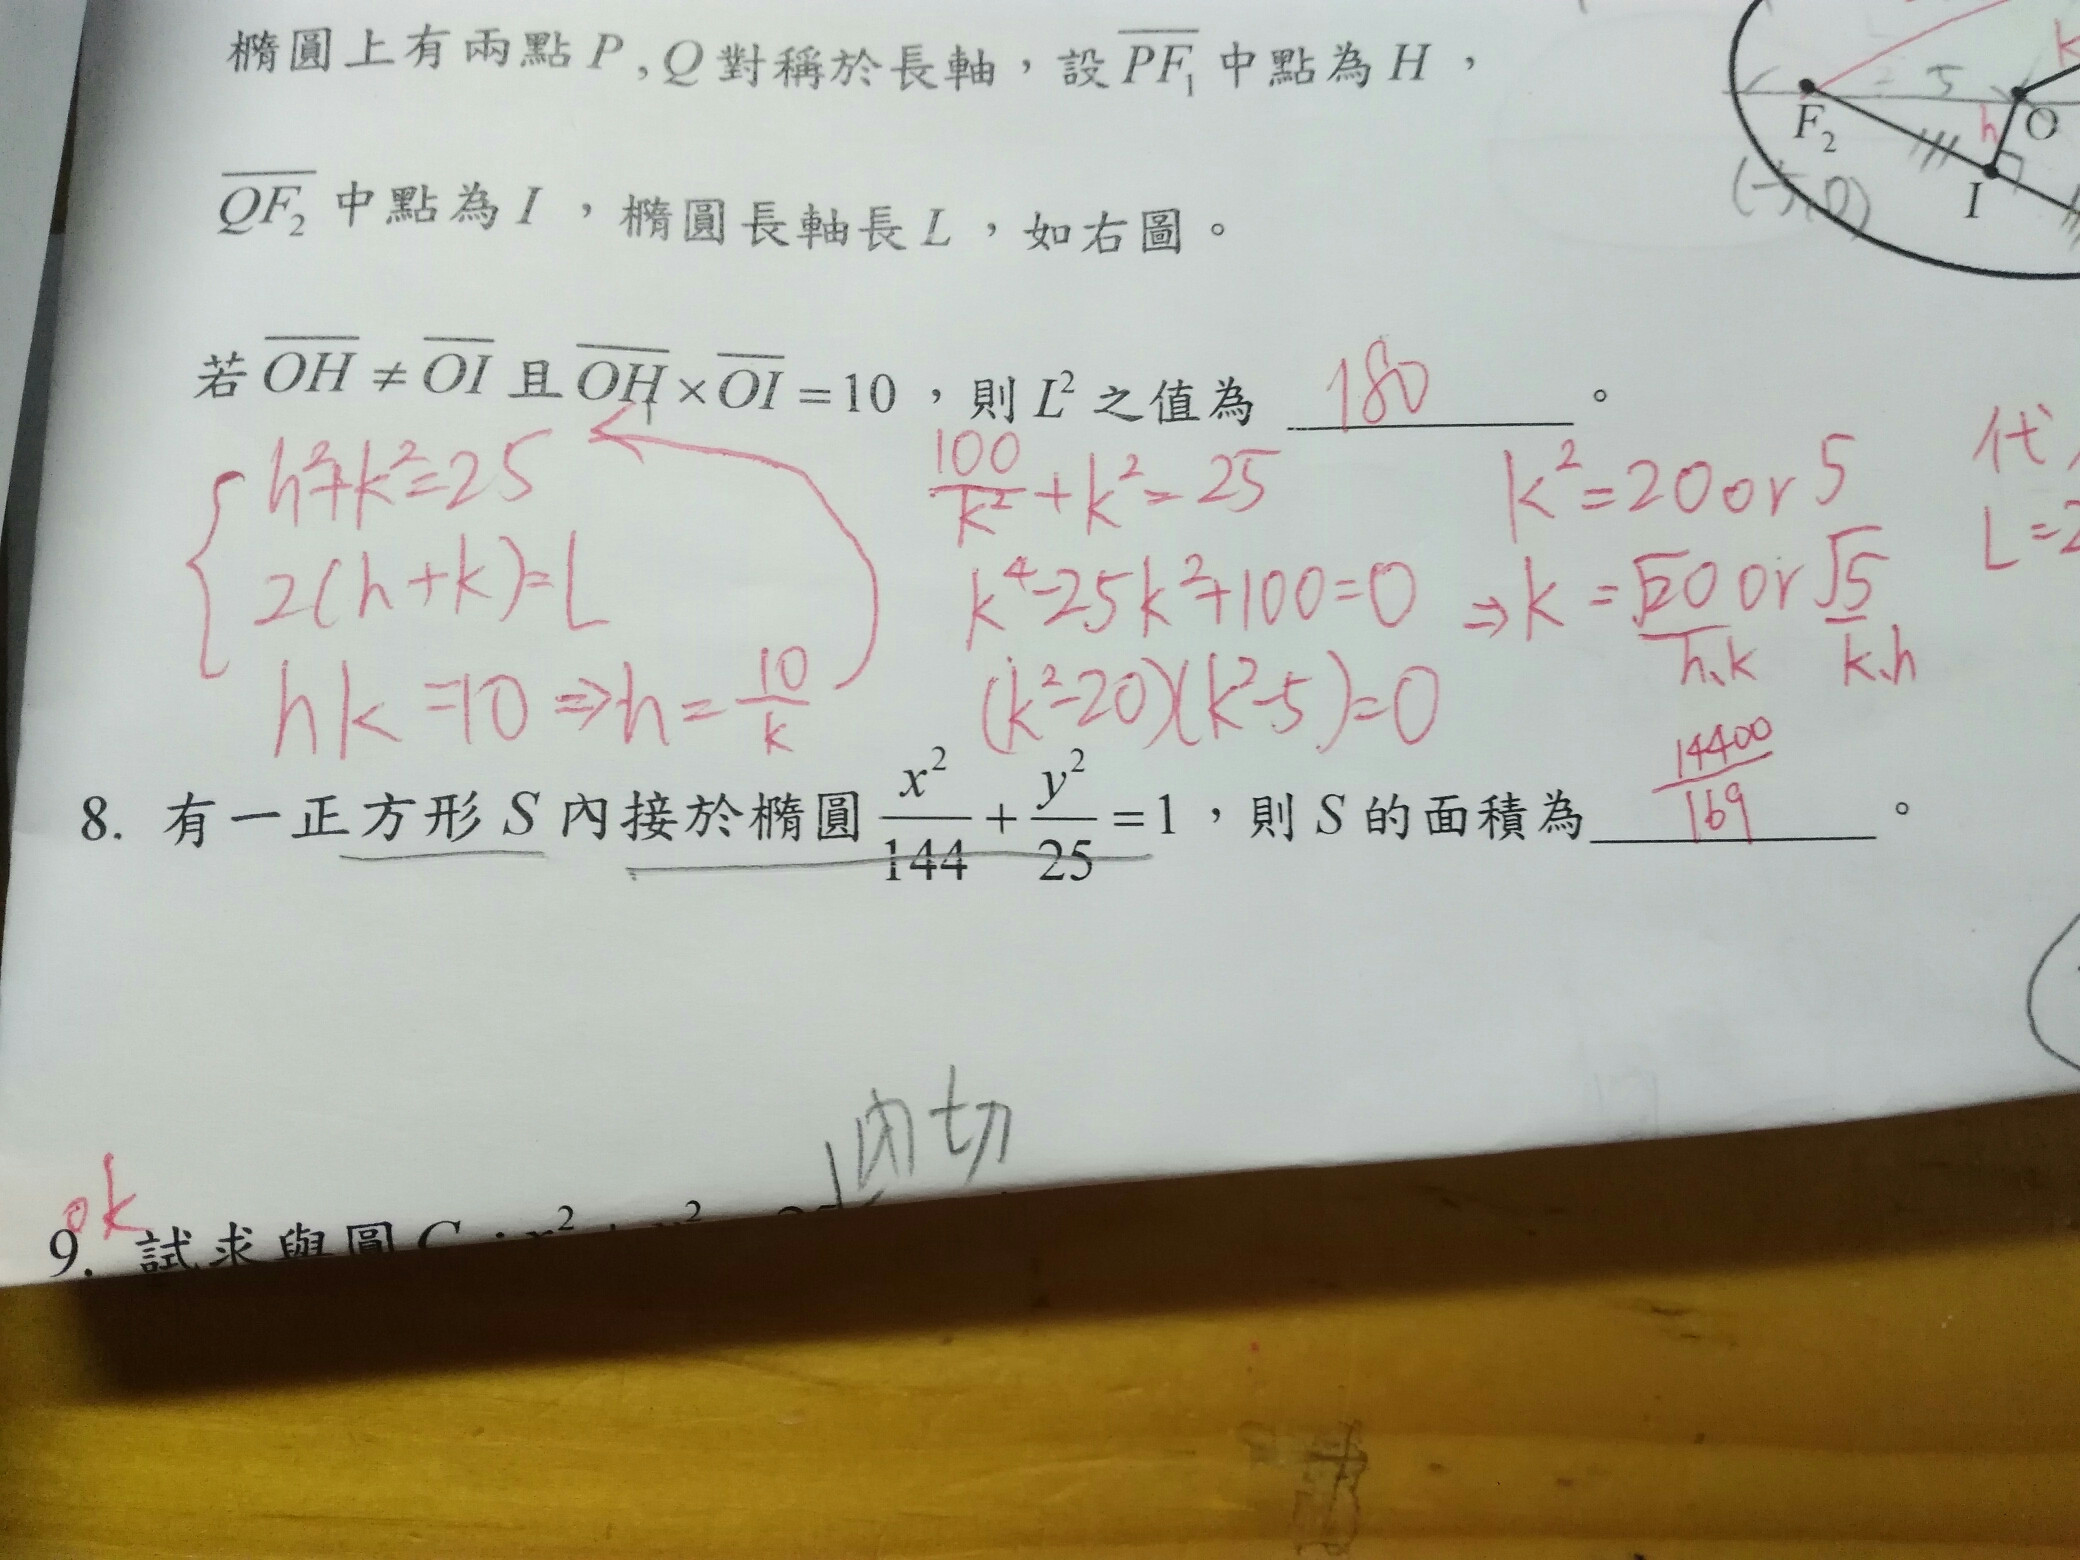 橢圓上有兩點 P , Q 對稱於長軸，設 \overline{PF_1} 中點為 H，
5
k
F_2
h
O
(-5,0)
I
\overline{QF_2} 中點為 I ，橢圓長軸長 L ，如右圖。
若 \overline{OH} ≠ \overline{OI} 且 \overline{OH} × \overline{OI} = 10 ，則 L^2 之值為 180 。
h^2+k^2=25
2(h+k)=L
hk=10 ⇒ h=\frac{10}{k}
\frac{100}{k^2}+k^2=25
k^4-25k^2+100=0
(k^2-20)(k^2-5)=0
k^2=20 or 5
⇒ k=\sqrt{20} or \sqrt{5}
h.k k.h
代
L=2
8. 有一正方形 S 內接於橢圓 \frac{x^2}{144}+\frac{y^2}{25}=1 ，則 S 的面積為 \frac{14400}{169} 。
內切
ok
9. 試求與圓 C : x^2 + y^2